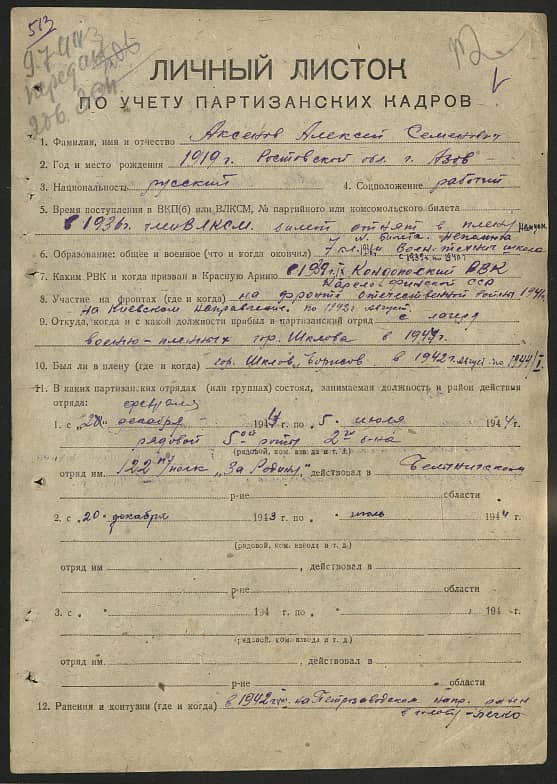 513
9.7.44 г
передан
в
ЛИЧНЫЙ ЛИСТОК
ПО УЧЕТУ ПАРТИЗАНСКИХ КАДРОВ
1. Фамилия, имя и отчество Аксенов Алексей Семенович
2. Год и место рождения 1919 г. Ростовской обл. г. Азов
3. Национальность русский 4. Соцположение рабочий
5. Время поступления в ВКП(б) или ВЛКСМ, № партийного или комсомольского билета
в 1936 г. член ВЛКСМ. билет отнят в плену немцам.
№ билета. непомню
6. Образование: общее и военное (что и когда окончил) 7 кл. Воен. технич школа
с 1939 по 1940 г.
7. Каким РВК и когда призван в Красную Армию в 1939 г. Кондопожский РВК
Карело финской ССР
8. Участие на фронтах (где и когда) на фронте отечественной войны 1941
на Киевском направлении. по 1942 г август.
9. Откуда, когда и с какой должности прибыл в партизанский отряд с лагеря
военно-пленных гор. Шклова в 1944 г.
10. Был ли в плену (где и когда) гор. Шклов, Борисов в 1942 г август по 1944/I
11. В каких партизанских отрядах (или группах) состоял, занимаемая должность и район действия
отряда: февраля
1. с 20 декабря 1944 г. по 5 июля 1944 г.
рядовой 5ой роты 2го б-на
(рядовой, ком. взвода и т. д.)
отряд им. 122 полк „За Родину", действовал в Белыничском
р-не области
2. с 20 декабря 1943 г. по июль 1944 г.
(рядовой, ком. взвода и т. д.)
отряд им. , действовал в
р-не области
3. с 194 г. по 194 г.
(рядовой, ком. взвода и т. д.)
отряд им. , действовал в
р-не области
12. Ранения и контузии (где и когда) в 1942 г. на Петрозаводском напр. ранен
в голову - легко